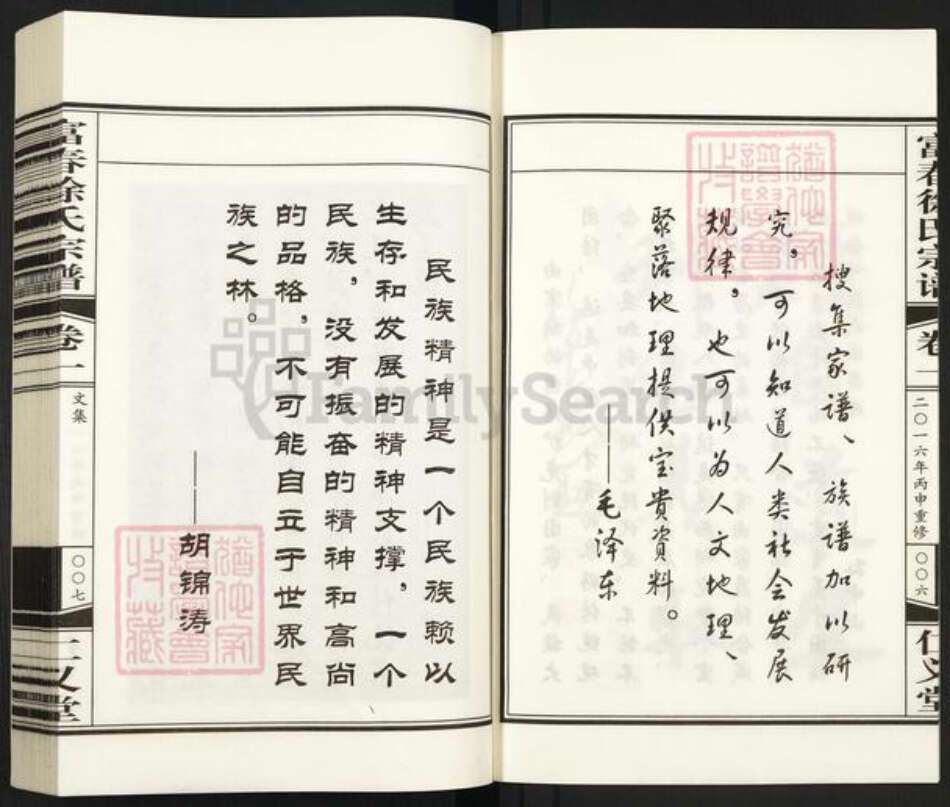 富春徐氏宗谱
卷一
二〇一六年丙申重修
〇〇六
仁义堂
搜集家谱、族谱加以研
究，可以知道人类社会发展
规律，也可以为人文地理、
聚落地理提供宝贵資料。
——毛泽东
民族精神是一个民族赖以
生存和发展的精神支撑，一个
民族，没有振奋的精神和高尚
的品格，不可能自立于世界民
族之林。
——胡锦涛
富春徐氏宗谱
卷一
文集
〇〇七
仁义堂
FamilySearch